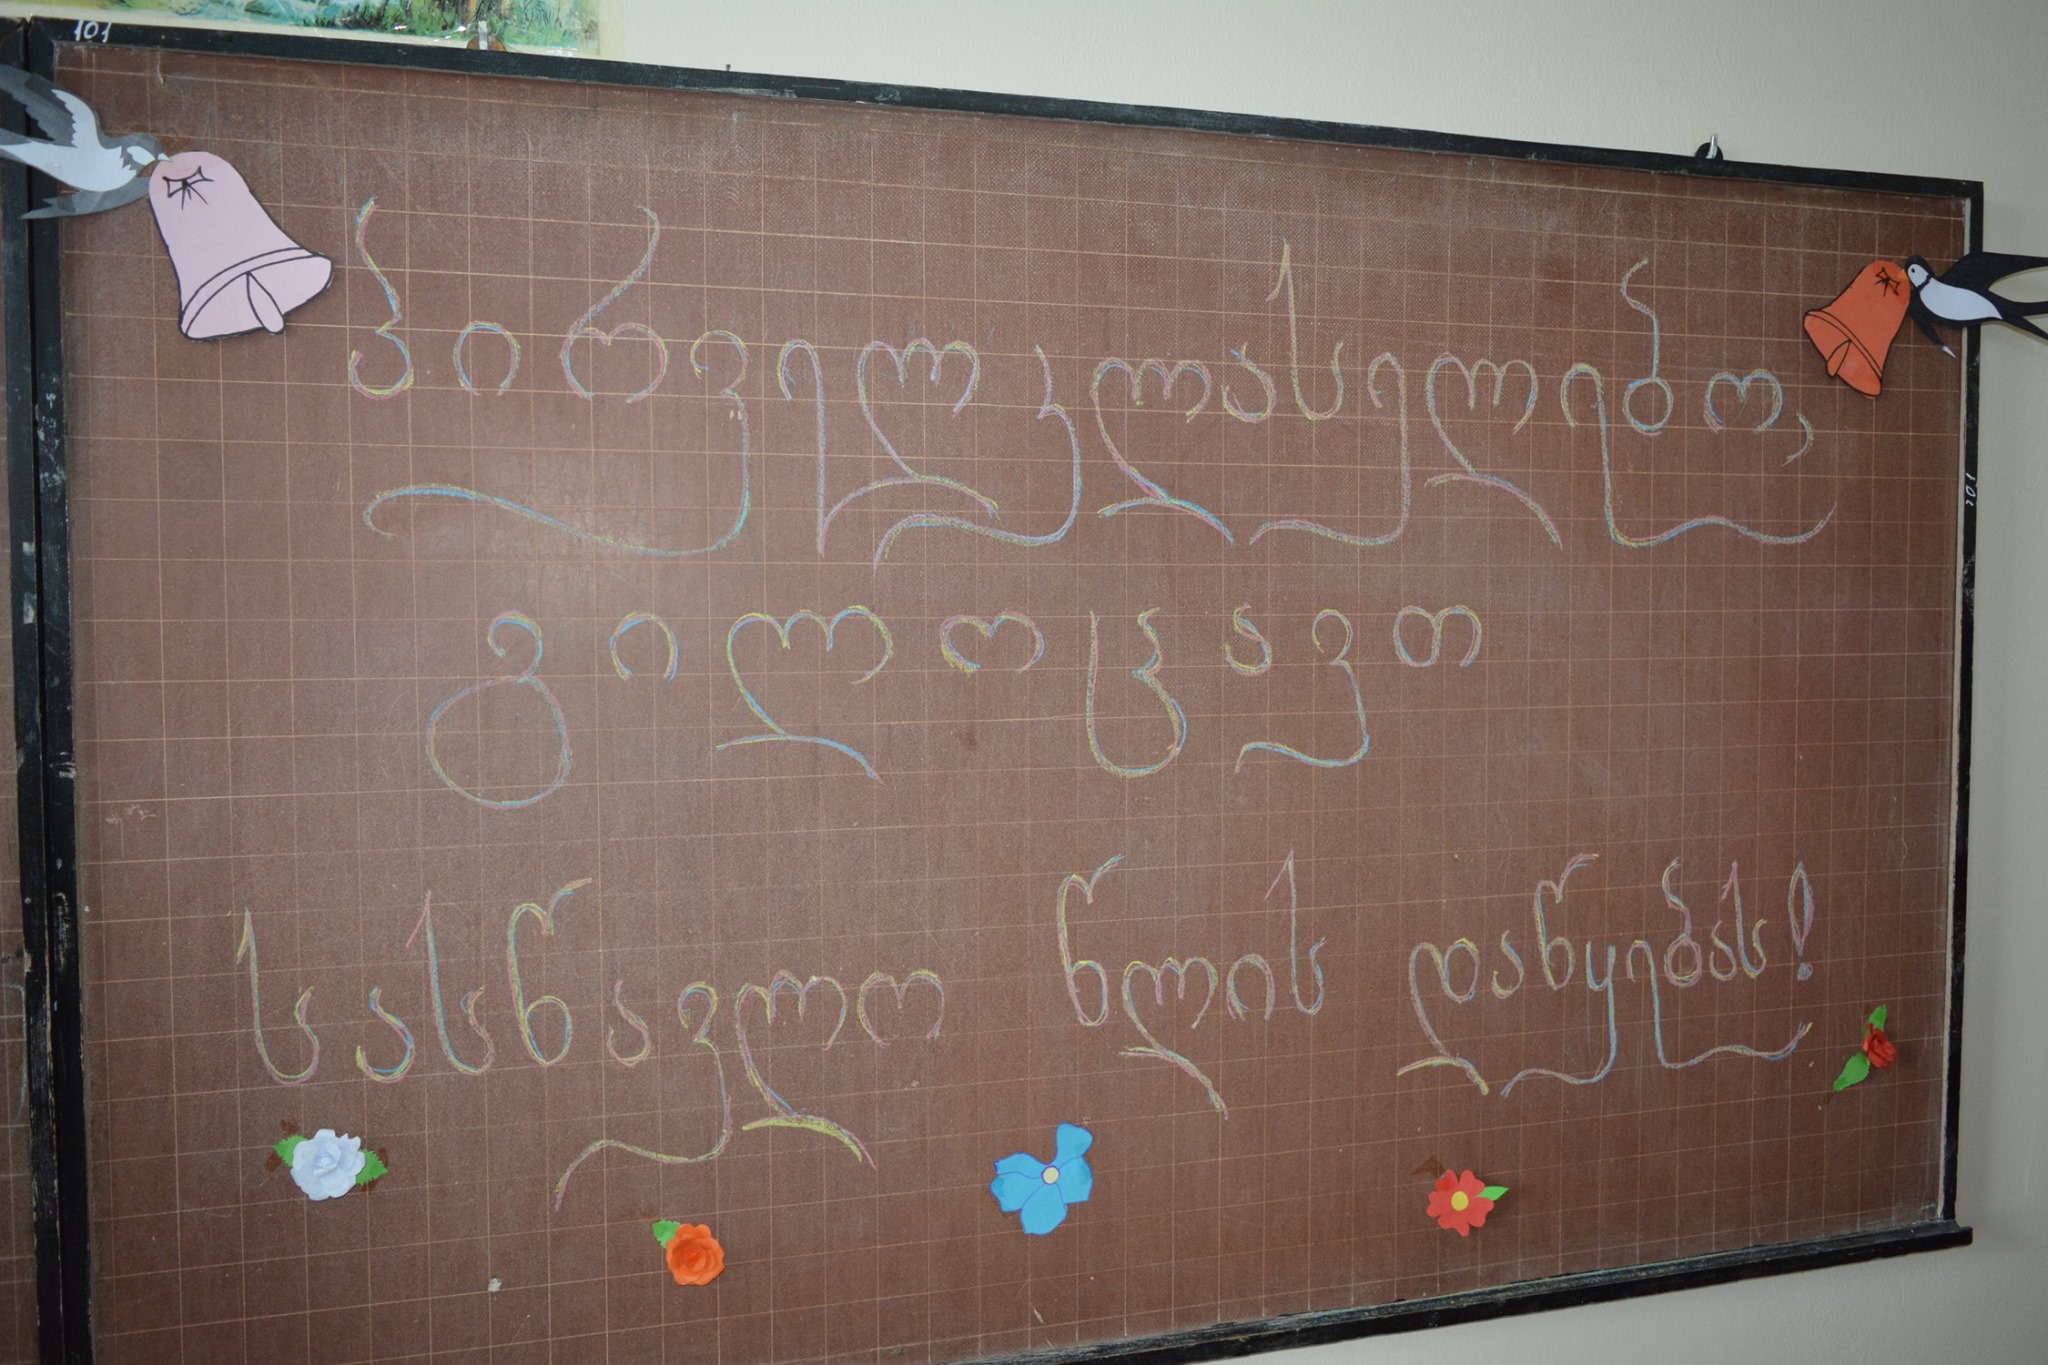 101
პირველკლასელებო,
გილოცავთ
სასწავლო წლის დაწყებას!
101